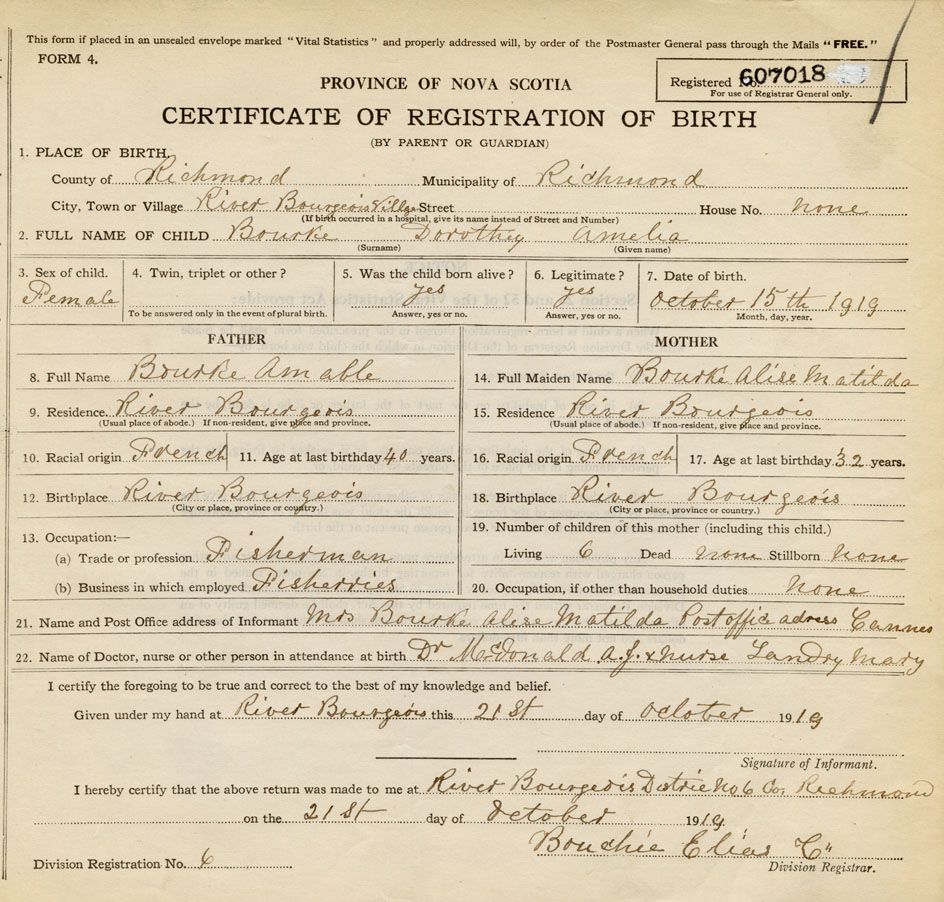 This form if placed in an unsealed envelope marked "Vital Statistics" and properly addressed will, by order of the Postmaster General pass through the Mails "FREE."
FORM 4.
PROVINCE OF NOVA SCOTIA
Registered No. 607018
For use of Registrar General only.
CERTIFICATE OF REGISTRATION OF BIRTH
(BY PARENT OR GUARDIAN)
1. PLACE OF BIRTH.
County of Richmond Municipality of Richmond
City, Town or Village River Bourgeois Village Street House No. none
(If birth occurred in a hospital, give its name instead of Street and Number)
2. FULL NAME OF CHILD Bourke Dorothey Amelia
(Surname) (Given name)
3. Sex of child. 4. Twin, triplet or other? 5. Was the child born alive? 6. Legitimate? 7. Date of birth.
Female yes yes October 15th 1919
To be answered only in the event of plural birth. Answer, yes or no. Answer, yes or no. Month, day, year.
FATHER MOTHER
8. Full Name Bourke Amable 14. Full Maiden Name Bourke Alise Matilda
9. Residence. River Bourgeois 15. Residence River Bourgeois
(Usual place of abode.) If non-resident, give place and province. (Usual place of abode.) If non-resident, give place and province.
10. Racial origin French 11. Age at last birthday 40 years. 16. Racial origin French 17. Age at last birthday 32 years.
12. Birthplace River Bourgeois 18. Birthplace River Bourgeois
(City or place, province or country.) (City or place, province or country.)
13. Occupation:— 19. Number of children of this mother (including this child.)
(a) Trade or profession Fisherman Living 6 Dead none Stillborn none
(b) Business in which employed Fisherries 20. Occupation, if other than household duties none
21. Name and Post Office address of Informant Mrs Bourke Alise Matilda Post office adress Cannes
22. Name of Doctor, nurse or other person in attendance at birth Dr McDonald A.J. & nurse Landry Mary
I certify the foregoing to be true and correct to the best of my knowledge and belief.
Given under my hand at River Bourgeois this 21st day of October 1919
Signature of Informant.
I hereby certify that the above return was made to me at River Bourgeois No 6 Co. Richmond
on the 21st day of October 1919
Bouchie Elias C"
Division Registration No. 6 Division Registrar.